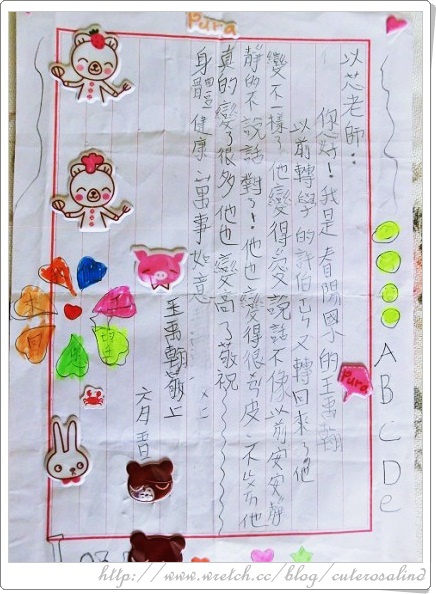 Pura
以芯老師:
你好!我是春陽國小的王禹翰
以前轉學的許伯ㄩ又轉回來了他
變不一樣了他變得愛說話不像以前安安靜
靜的不說話對了!他也變得很皮
真的變了很多他也變高了敬祝
身體健康 萬事如意
王禹翰敬上
Pura
A B C D e
http://www.wretch.cc/blog/cuterosalind